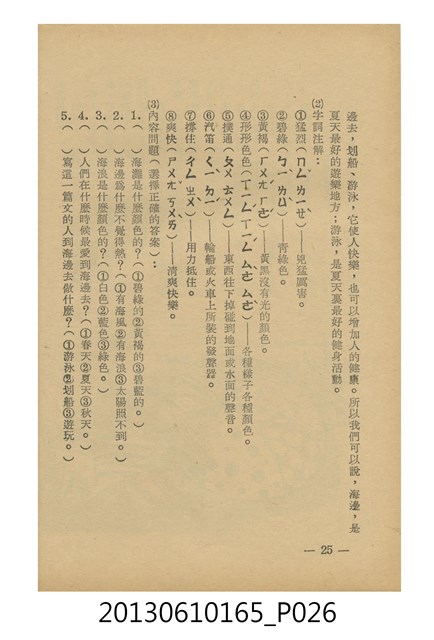 邊去，划船、游泳，它使人快樂，也可以增加人的健康。所以我們可以說，海邊，是
夏天最好的遊樂地方；游泳，是夏天裏最好的健身活動。
⑵字詞注解：
①猛烈（ㄇㄥˇ ㄌㄧㄝˋ）——兇猛厲害。
②碧綠（ㄅㄧˋ ㄌㄩˋ）——青綠色。
③黃褐（ㄏㄨㄤˊ ㄏㄜˊ）——黃黑沒有光的顏色。
④形形色色（ㄒㄧㄥˊ ㄒㄧㄥˊ ㄙㄜˋ ㄙㄜˋ）——各種樣子各種顏色。
⑤撲通（ㄆㄨ ㄊㄨㄥ）——東西往下掉碰到地面或水面的聲音。
⑥汽笛（ㄑㄧˋ ㄉㄧˊ）——輪船或火車上所裝的發聲器。
⑦撐住（ㄔㄥ ㄓㄨˋ）——用力抵住。
⑧爽快（ㄕㄨㄤˇ ㄎㄨㄞˋ）——清爽快樂。
⑶內容問題（選擇正確的答案）：
1.（　）海灘是什麼顏色的？（①碧綠的②黃褐的③碧藍的　）
2.（　）海邊爲什麼不覺得熱？（①有海風②有海浪③太陽照不到。　）
3.（　）海浪是什麼顏色的？（①白色②藍色③綠色。）
4.（　）人們在什麼時候最愛到海邊去？（①春天②夏天③秋天。）
5.（　）寫這一篇文的人到海邊去做什麼？（①游泳②划船③遊玩。　）
— 25 —
20130610165_P026